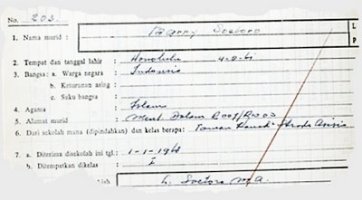 No. 203.
1. Nama murid : Barry Soetoro L P
2. Tempat dan tanggal lahir : Honolulu 4-8-61
3. Bangsa : a. Warga negara : Indonesia
b. Keturunan asing :
c. Suku bangsa :
4. Agama : Islam
5. Alamat murid : Ment Dalam R001/Rw003
6. Dari sekolah mana (dipindahkan) dan kelas berapa:
7. a. Diterima disekolah ini tgl.: 1-1-1968
b. Ditempatkan dikelas : I
L. Soetoro M.A.